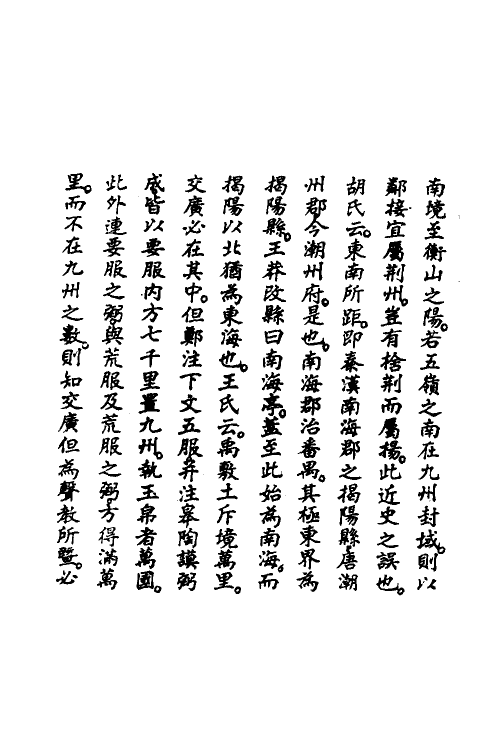 南境至衡山之陽。若五嶺之南在九州封域。則以
鄰接宜屬荆州。豈有捨荆而屬揚。此近史之誤也。
胡氏云。東南所距。即秦漢南海郡之揭陽縣。唐潮
州郡。今潮州府。是也。南海郡治番禺。其極東界為
揭陽縣。王莽改縣曰南海亭。蓋至此始為南海。而
揭陽以北猶為東海也。王氏云。禹敷土斥境萬里。
交廣必在其中。但鄭注下文五服并注皋陶謨弼
成。皆以要服内方七千里置九州。執玉帛者萬國。
此外連要服之弼。與荒服及荒服之弼。方得滿萬
里。而不在九州之數。則知交廣但為聲教所曁。必